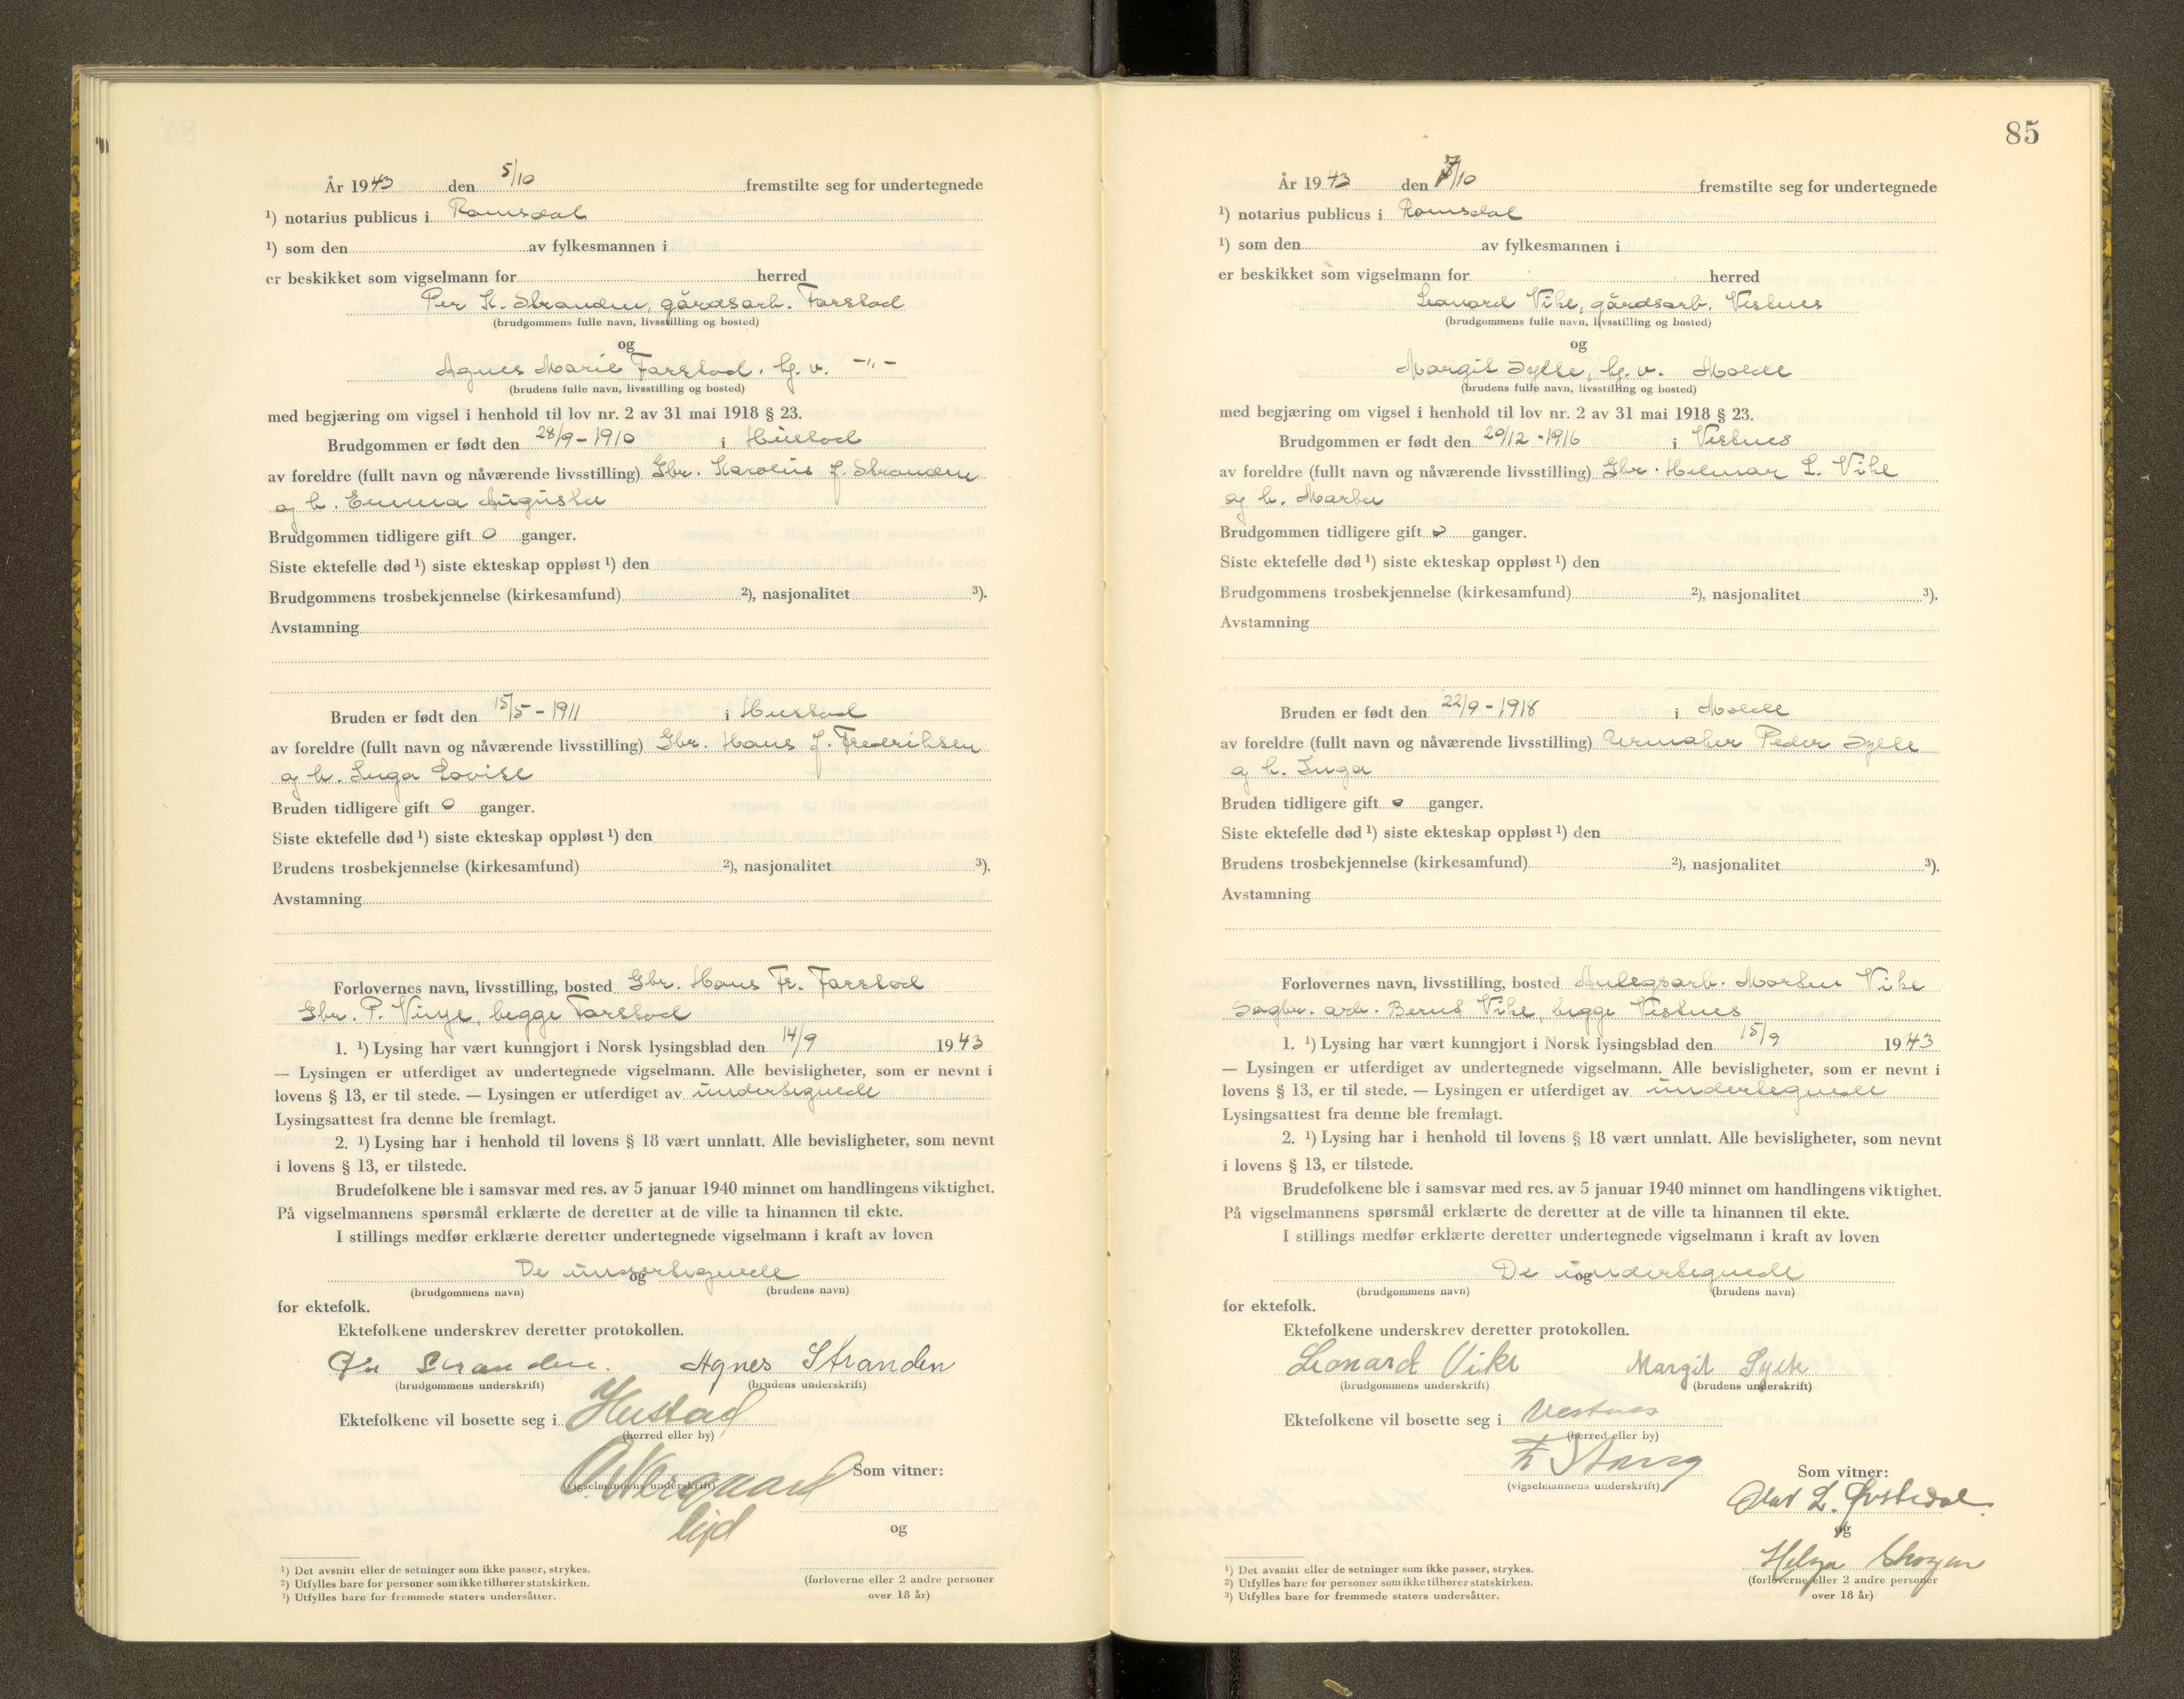 År 1943 den 5/10 fremstilte seg for undertegnede
¹) notarius publicus i Romsdal
¹) som den av fylkesmannen i
er beskikket som vigselmann for herred
Per K. Stranden, gårdsarb. Farstad
(brudgommens fulle navn, livsstilling og bosted)
og
Agnes Marie Farstad. hj. v. -"-
(brudens fulle navn, livsstilling og bosted)
med begjæring om vigsel i henhold til lov nr. 2 av 31 mai 1918 § 23.
Brudgommen er født den 28/9 - 1910 i Hustad
av foreldre (fullt navn og nåværende livsstilling) Gbr. Karolius J. Stranden
og h. Emma Augusta
Brudgommen tidligere gift 0 ganger.
Siste ektefelle død ¹) siste ekteskap oppløst ¹) den
Brudgommens trosbekjennelse (kirkesamfund) ²), nasjonalitet ³).
Avstamning
Bruden er født den 15/5 - 1911 i Hustad
av foreldre (fullt navn og nåværende livsstilling) Gbr. Hans J. Fredriksen
og h. Inga Lovise
Bruden tidligere gift 0 ganger.
Siste ektefelle død ¹) siste ekteskap oppløst ¹) den
Brudens trosbekjennelse (kirkesamfund) ²), nasjonalitet ³).
Avstamning
Forlovernes navn, livsstilling, bosted Gbr. Hans Fr. Farstad
Gbr. P. Vinje, begge Farstad
1. ¹) Lysing har vært kunngjort i Norsk lysingsblad den 14/9 1943
— Lysingen er utferdiget av undertegnede vigselmann. Alle bevisligheter, som er nevnt i
lovens § 13, er til stede. — Lysingen er utferdiget av undertegnede
Lysingsattest fra denne ble fremlagt.
2. ¹) Lysing har i henhold til lovens § 18 vært unnlatt. Alle bevisligheter, som nevnt
i lovens § 13, er tilstede.
Brudefolkene ble i samsvar med res. av 5 januar 1940 minnet om handlingens viktighet.
På vigselmannens spørsmål erklærte de deretter at de ville ta hinannen til ekte.
I stillings medfør erklærte deretter undertegnede vigselmann i kraft av loven
De undertegnede
og
(brudgommens navn) (brudens navn)
for ektefolk.
Ektefolkene underskrev deretter protokollen.
Per Stranden. Agnes Stranden
(brudgommens underskrift) (brudens underskrift)
Ektefolkene vil bosette seg i Hustad
(herred eller by)
Som vitner:
(vigselmannens underskrift)
og
¹) Det avsnitt eller de setninger som ikke passer, strykes.
²) Utfylles bare for personer som ikke tilhører statskirken.
³) Utfylles bare for fremmede staters undersåtter.
(forloverne eller 2 andre personer
over 18 år)
85
År 1943 den 7/10 fremstilte seg for undertegnede
¹) notarius publicus i Romsdal
¹) som den av fylkesmannen i
er beskikket som vigselmann for herred
Leonard Vike, gårdsarb. Vestnes
(brudgommens fulle navn, livsstilling og bosted)
og
Margit Sylte, hj. v. Molde
(brudens fulle navn, livsstilling og bosted)
med begjæring om vigsel i henhold til lov nr. 2 av 31 mai 1918 § 23.
Brudgommen er født den 20/12 - 1916 i Vestnes
av foreldre (fullt navn og nåværende livsstilling) Gbr. Helmar L. Vike
og h. Marta
Brudgommen tidligere gift 0 ganger.
Siste ektefelle død ¹) siste ekteskap oppløst ¹) den
Brudgommens trosbekjennelse (kirkesamfund) ²), nasjonalitet ³).
Avstamning
Bruden er født den 22/9 - 1918 i Molde
av foreldre (fullt navn og nåværende livsstilling) Urmaker Peder Sylte
og h. Inga
Bruden tidligere gift 0 ganger.
Siste ektefelle død ¹) siste ekteskap oppløst ¹) den
Brudens trosbekjennelse (kirkesamfund) ²), nasjonalitet ³).
Avstamning
Forlovernes navn, livsstilling, bosted Anlegsarb. Morten Vike
Sagbr. arb. Bernt Vike, begge Vestnes
1. ¹) Lysing har vært kunngjort i Norsk lysingsblad den 15/9 1943
— Lysingen er utferdiget av undertegnede vigselmann. Alle bevisligheter, som er nevnt i
lovens § 13, er til stede. — Lysingen er utferdiget av undertegnede
Lysingsattest fra denne ble fremlagt.
2. ¹) Lysing har i henhold til lovens § 18 vært unnlatt. Alle bevisligheter, som nevnt
i lovens § 13, er tilstede.
Brudefolkene ble i samsvar med res. av 5 januar 1940 minnet om handlingens viktighet.
På vigselmannens spørsmål erklærte de deretter at de ville ta hinannen til ekte.
I stillings medfør erklærte deretter undertegnede vigselmann i kraft av loven
De undertegnede
og
(brudgommens navn) (brudens navn)
for ektefolk.
Ektefolkene underskrev deretter protokollen.
Leonard Vike Margit Sylte
(brudgommens underskrift) (brudens underskrift)
Ektefolkene vil bosette seg i Vestnes
(herred eller by)
F Stang
Som vitner:
(vigselmannens underskrift)
Olav L. Øvstedal
og
Helga
¹) Det avsnitt eller de setninger som ikke passer, strykes.
²) Utfylles bare for personer som ikke tilhører statskirken.
³) Utfylles bare for fremmede staters undersåtter.
(forloverne eller 2 andre personer
over 18 år)